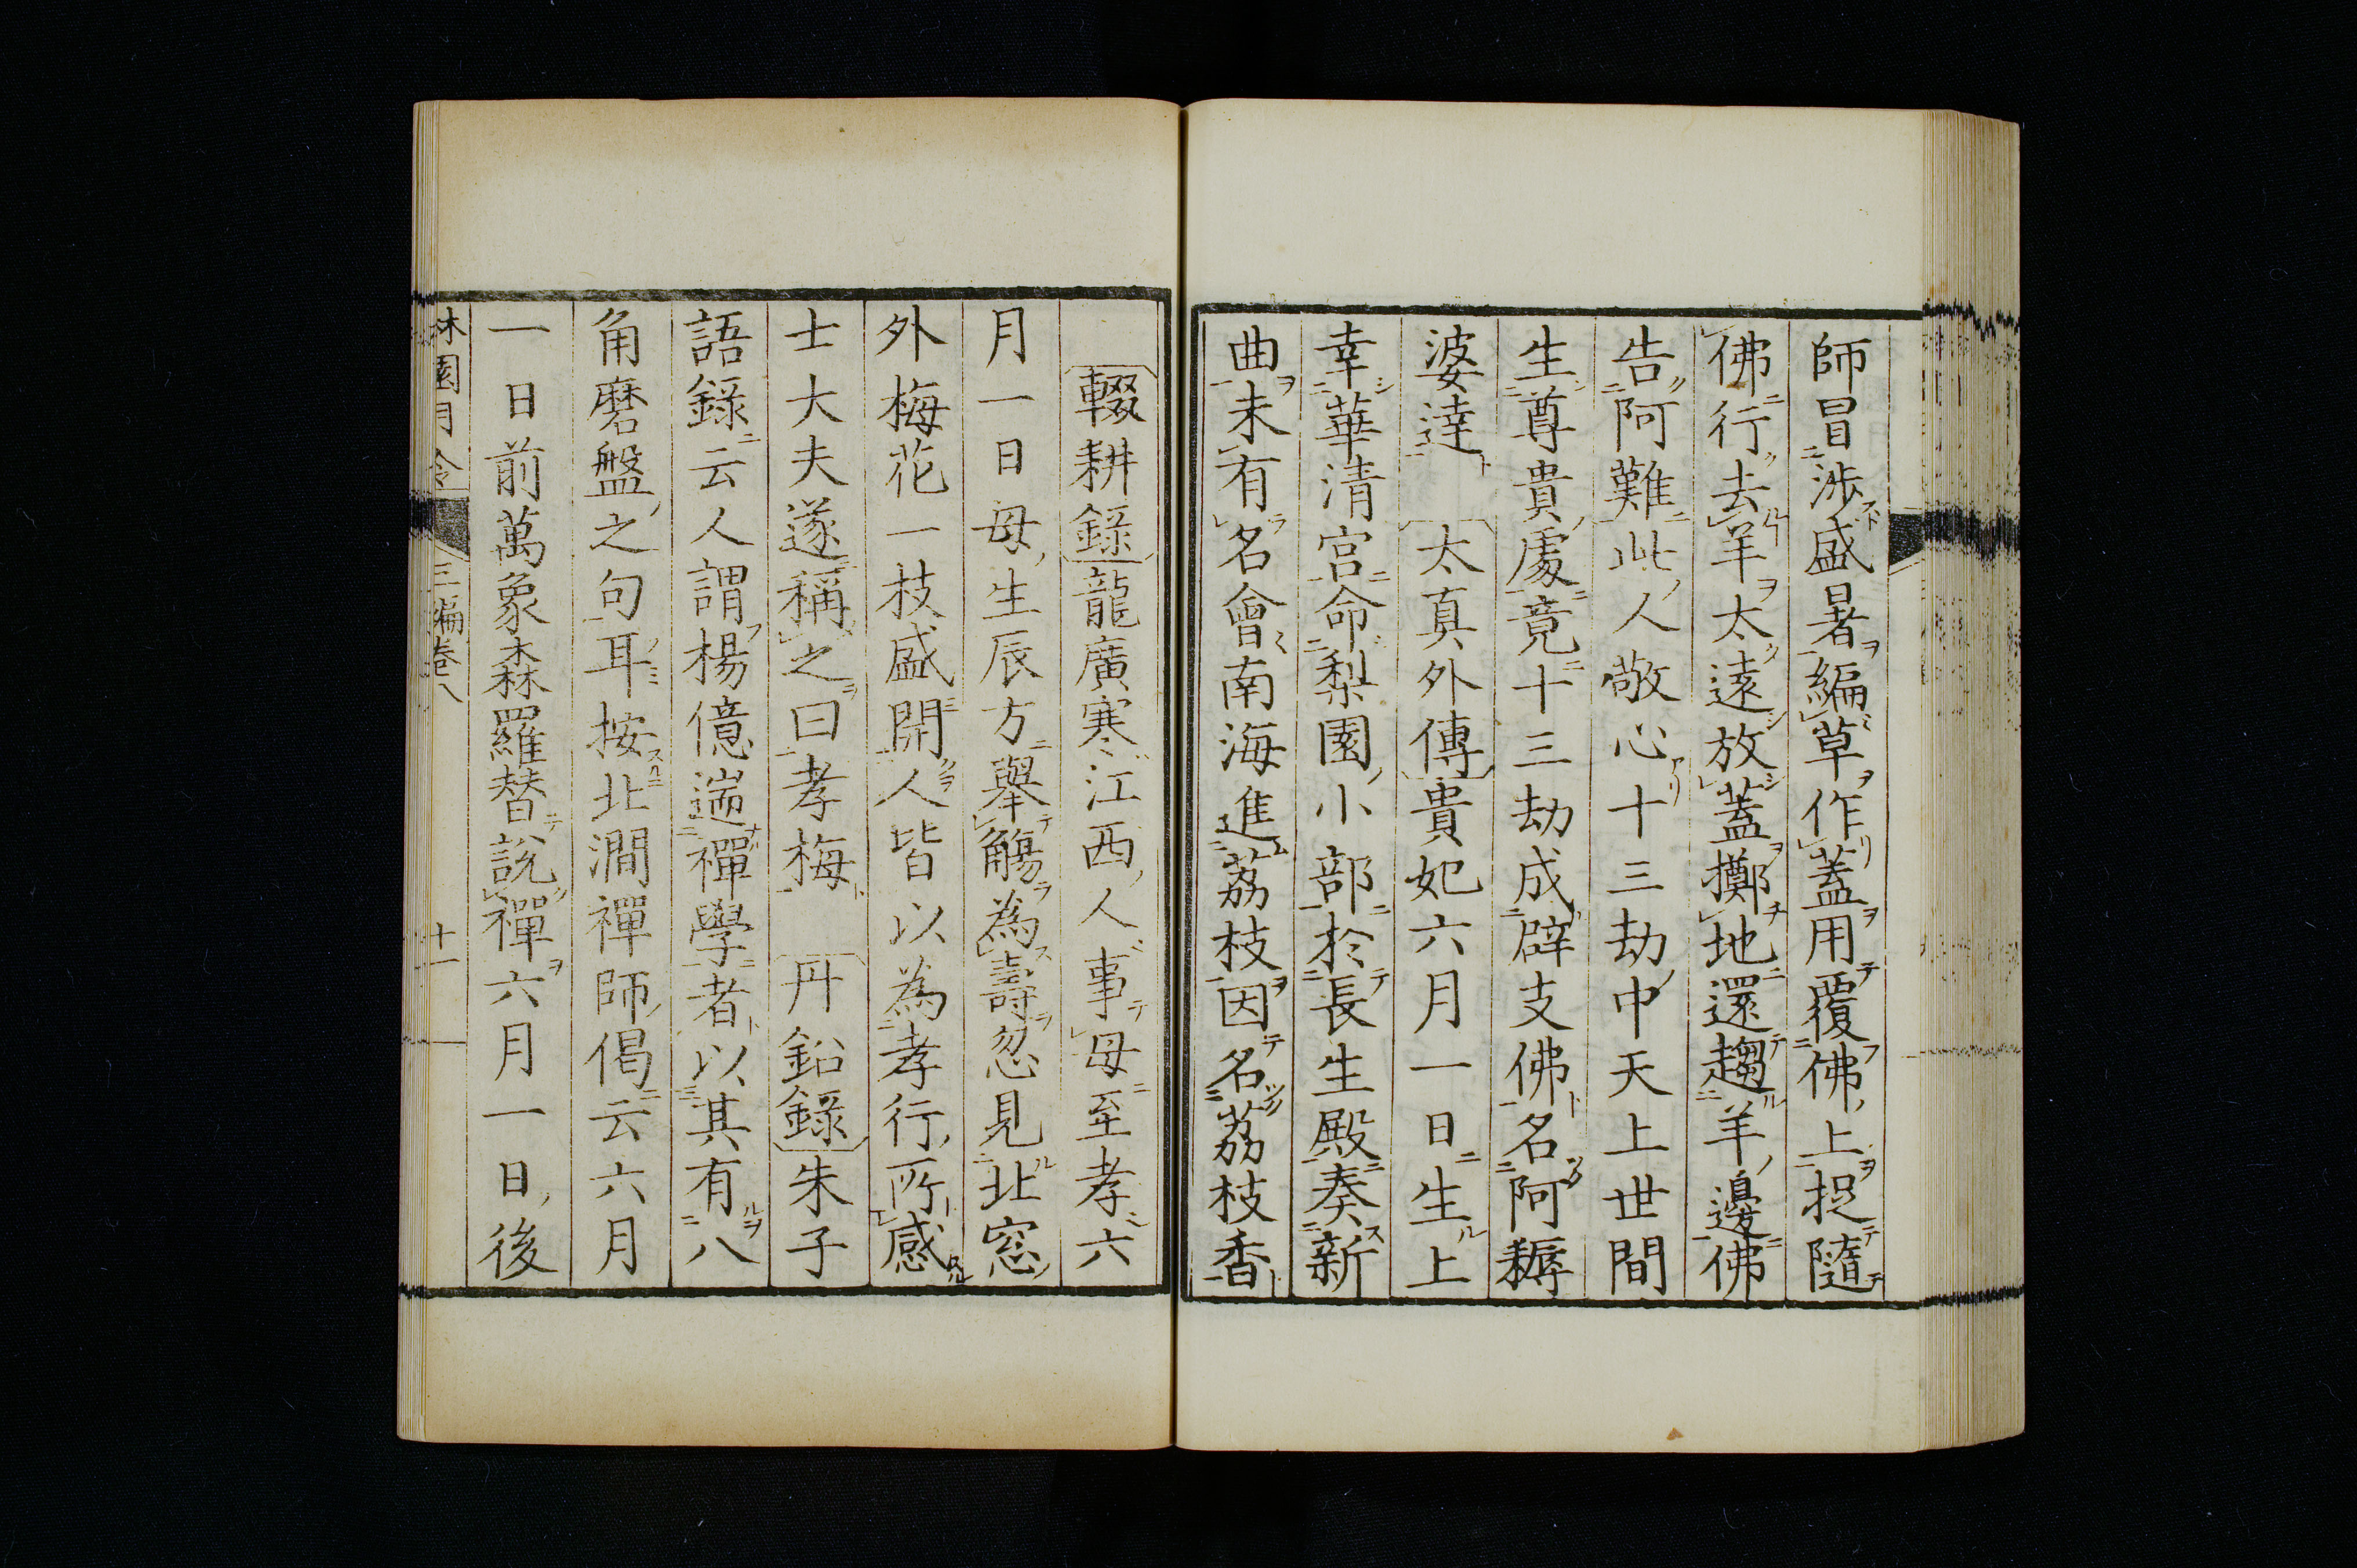 師冒涉盛暑編草作蓋用覆佛上捉隨
佛行去羊太遠放蓋擲地還趨羊邊佛
告阿難此人敬心十三劫中天上世間
生尊貴處竟十三劫成辟支佛名阿耨
婆達　太真外傳貴妃六月一日生上
幸華清宮命梨園小部於長生殿奏新
曲未有名會南海進荔枝因名荔枝香
輟耕錄龍廣寒江西人事母至孝六
月一日母生辰方舉觴為壽忽見北窓
外梅花一枝盛開人皆以為孝行所感
士大夫遂稱之曰孝梅　丹鉛錄朱子
語錄云人謂楊億遄禪學者以其有八
角磨盤之句耳按北澗禪師偈云六月
一日前萬象森羅替說禪六月一日後
林園月令　三編卷八　十一